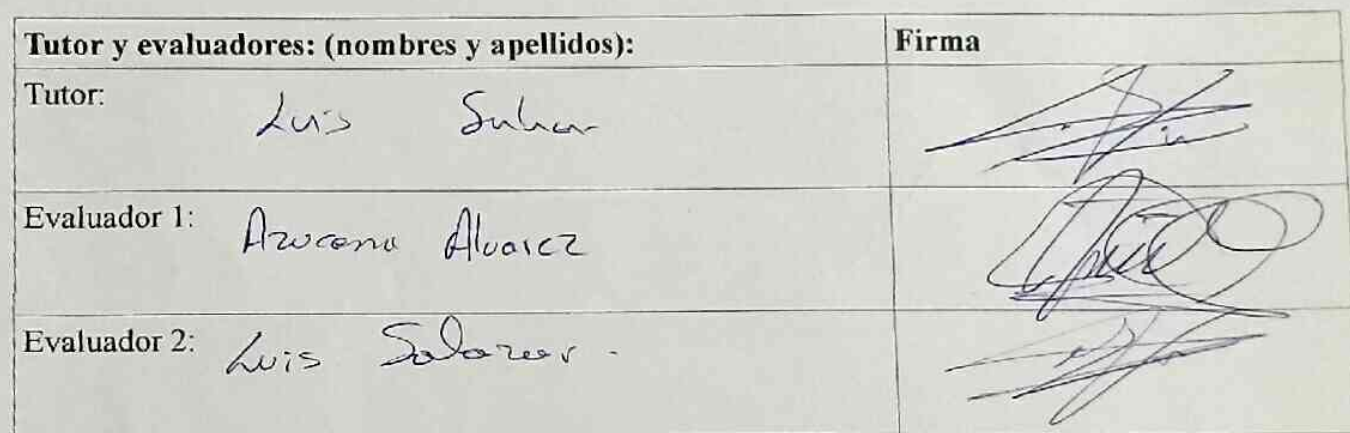 Tutor y evaluadores: (nombres y apellidos): Firma
Tutor: Luis
Evaluador 1: Azucena Alvarez
Evaluador 2: Luis Salazar.